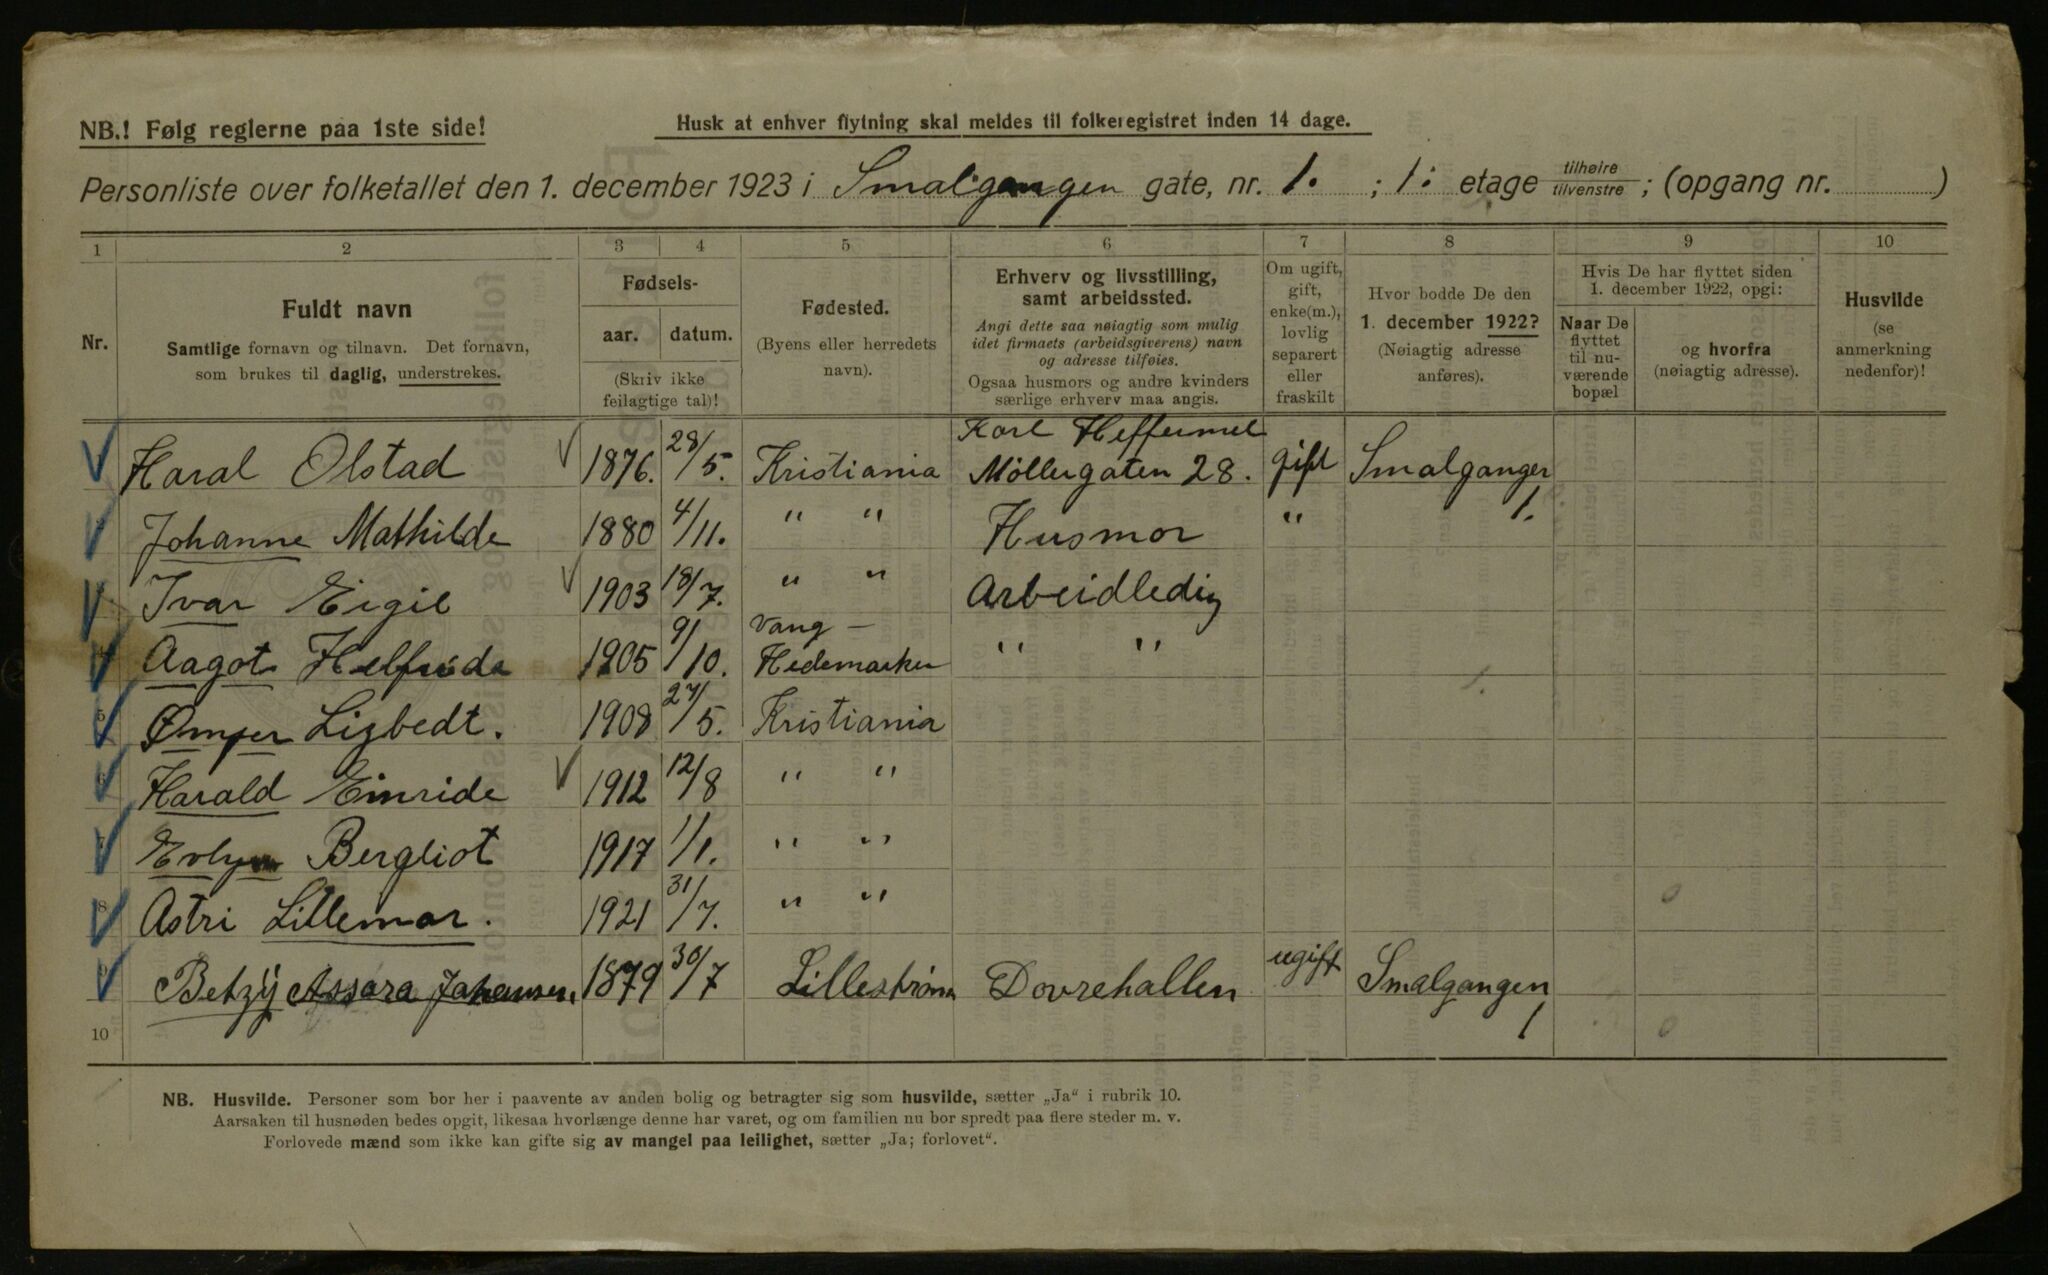 NB.! Følg reglerne paa 1ste side!
Husk at enhver flytning skal meldes til folkeregistret inden 14 dage.
Personliste over folketallet den 1. december 1923 i Smalgangen gate, nr. 1. ; 1: etage tilhøire tilvenstre ; (opgang nr. )
1 2 3 4 5 6 7 8 9 10
Nr.
Fuldt navn
Samtlige fornavn og tilnavn. Det fornavn,
som brukes til daglig, understrekes.
Fødsels-
aar. datum.
(Skriv ikke
feilagtige tal)!
Fødested.
(Byens eller herredets
navn).
Erhverv og livsstilling,
samt arbeidssted.
Angi dette saa nøiagtig som mulig
idet firmaets (arbeidsgiverens) navn
og adresse tilføies.
Ogsaa husmors og andre kvinders
særlige erhverv maa angis.
Om ugift,
gift,
enke(m.),
lovlig
separert
eller
fraskilt
Hvor bodde De den
1. december 1922?
(Nøiagtig adresse
anføres).
Hvis De har flyttet siden
1. december 1922, opgi:
Naar De
flyttet
til nu-
værende
bopæl
og hvorfra
(nøiagtig adresse).
Husvilde
(se
anmerkning
nedenfor)!
Karl Heffermel
Haral Olstad 1876. 28/5. Kristiania Møllergaten 28. gift Smalgangen
1.
Johanne Mathilde 1880 4/11. " " Husmor "
Ivar Eigil 1903 18/7. " " Arbeidledig
Vang –
Aagot Helfride 1905 9/10. Hedemarken " "
5 Lisbedt. 1908 27/5. Kristiania
6 Harald Einride 1912 12/8 " "
7 Evlyn Bergliot 1917 1/1. " "
8 Astri Lillemor. 1921 31/7. " "
9 Betzÿ Assora Johansen. 1879 30/7 Lillestrøm Dovrehallen ugift Smalgangen
1
10
NB. Husvilde. Personer som bor her i paavente av anden bolig og betragter sig som husvilde, sætter „Ja“ i rubrik 10.
Aarsaken til husnøden bedes opgit, likesaa hvorlænge denne har varet, og om familien nu bor spredt paa flere steder m. v.
Forlovede mænd som ikke kan gifte sig av mangel paa leilighet, sætter „Ja; forlovet“.